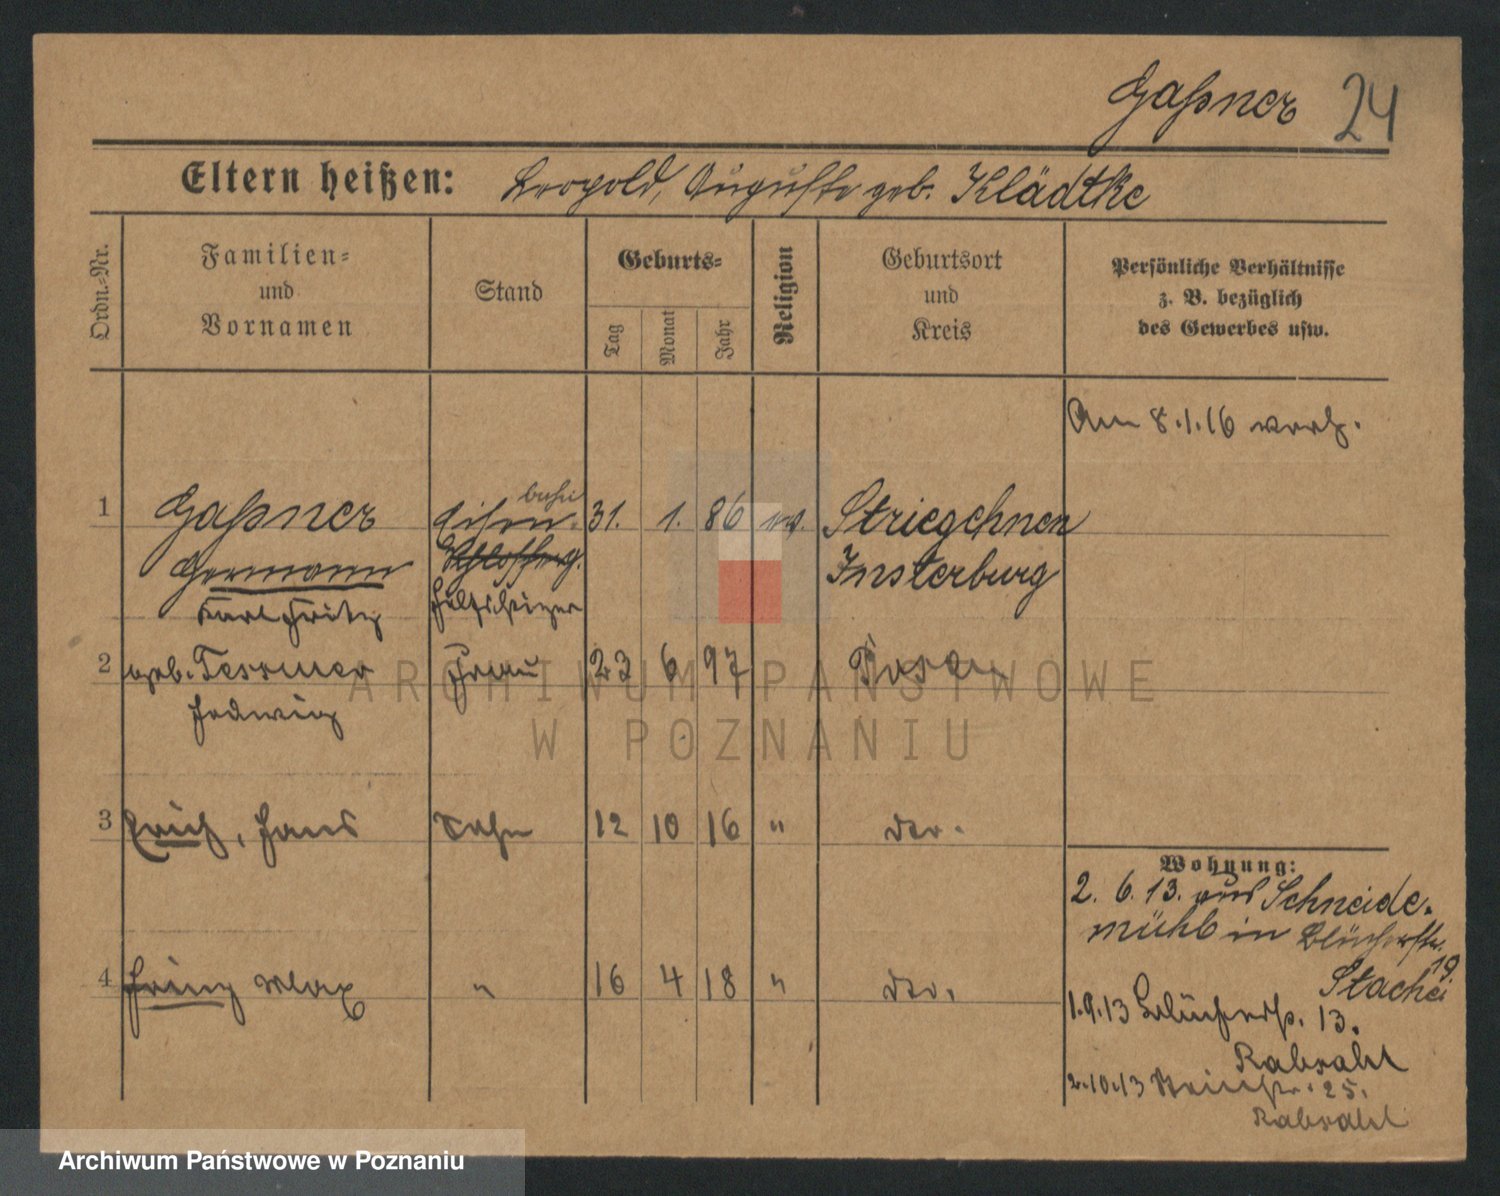 Gaßner 24
Eltern heißen: Leopold, Auguste geb. Klädtke
Ordn.-Nr.
Familien-
und
Vornamen
Stand
Geburts-
Tag
Monat
Jahr
Religion
Geburtsort
und
Kreis
Persönliche Verhältnisse
z. B. bezüglich
des Gewerbes usw.
Am 8.1.16 verh.
1 Gaßner Eisen- 31. 1. 86 ev. Striegehnen
Hermann Insterburg
Karl Fritz Hilfsheizer
2 geb. Tessmer Frau 23 6 97 Posen
Hedwig
3 Erich, Hans Sohn 12 10 16 " der.
Wohnung:
2. 6. 13. aus Schneide-
mühl in Blücherstr.
19
4 Heinz Max " 16 4 18 " der.
Stachei
1.9.13 Blücherstr. 13.
Rabsahl
2.10.13 25.
Rabsahl
ARCHIWUM PAŃSTWOWE
W POZNANIU
Archiwum Państwowe w Poznaniu